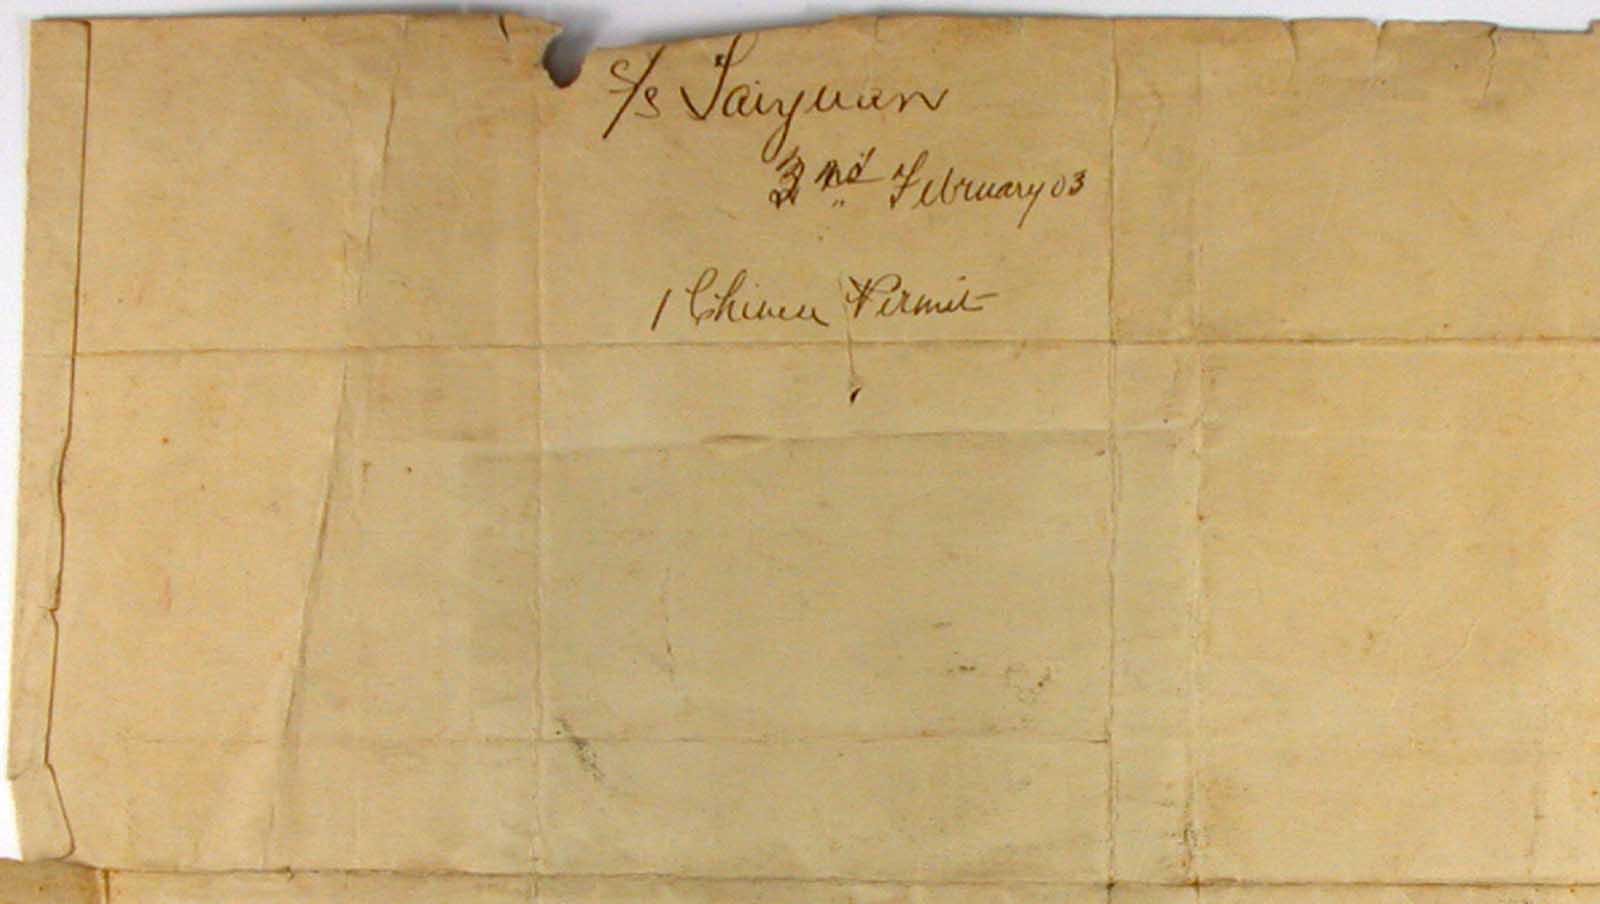 S/s Taiyuan
2nd February 03
1 Chinese Permit